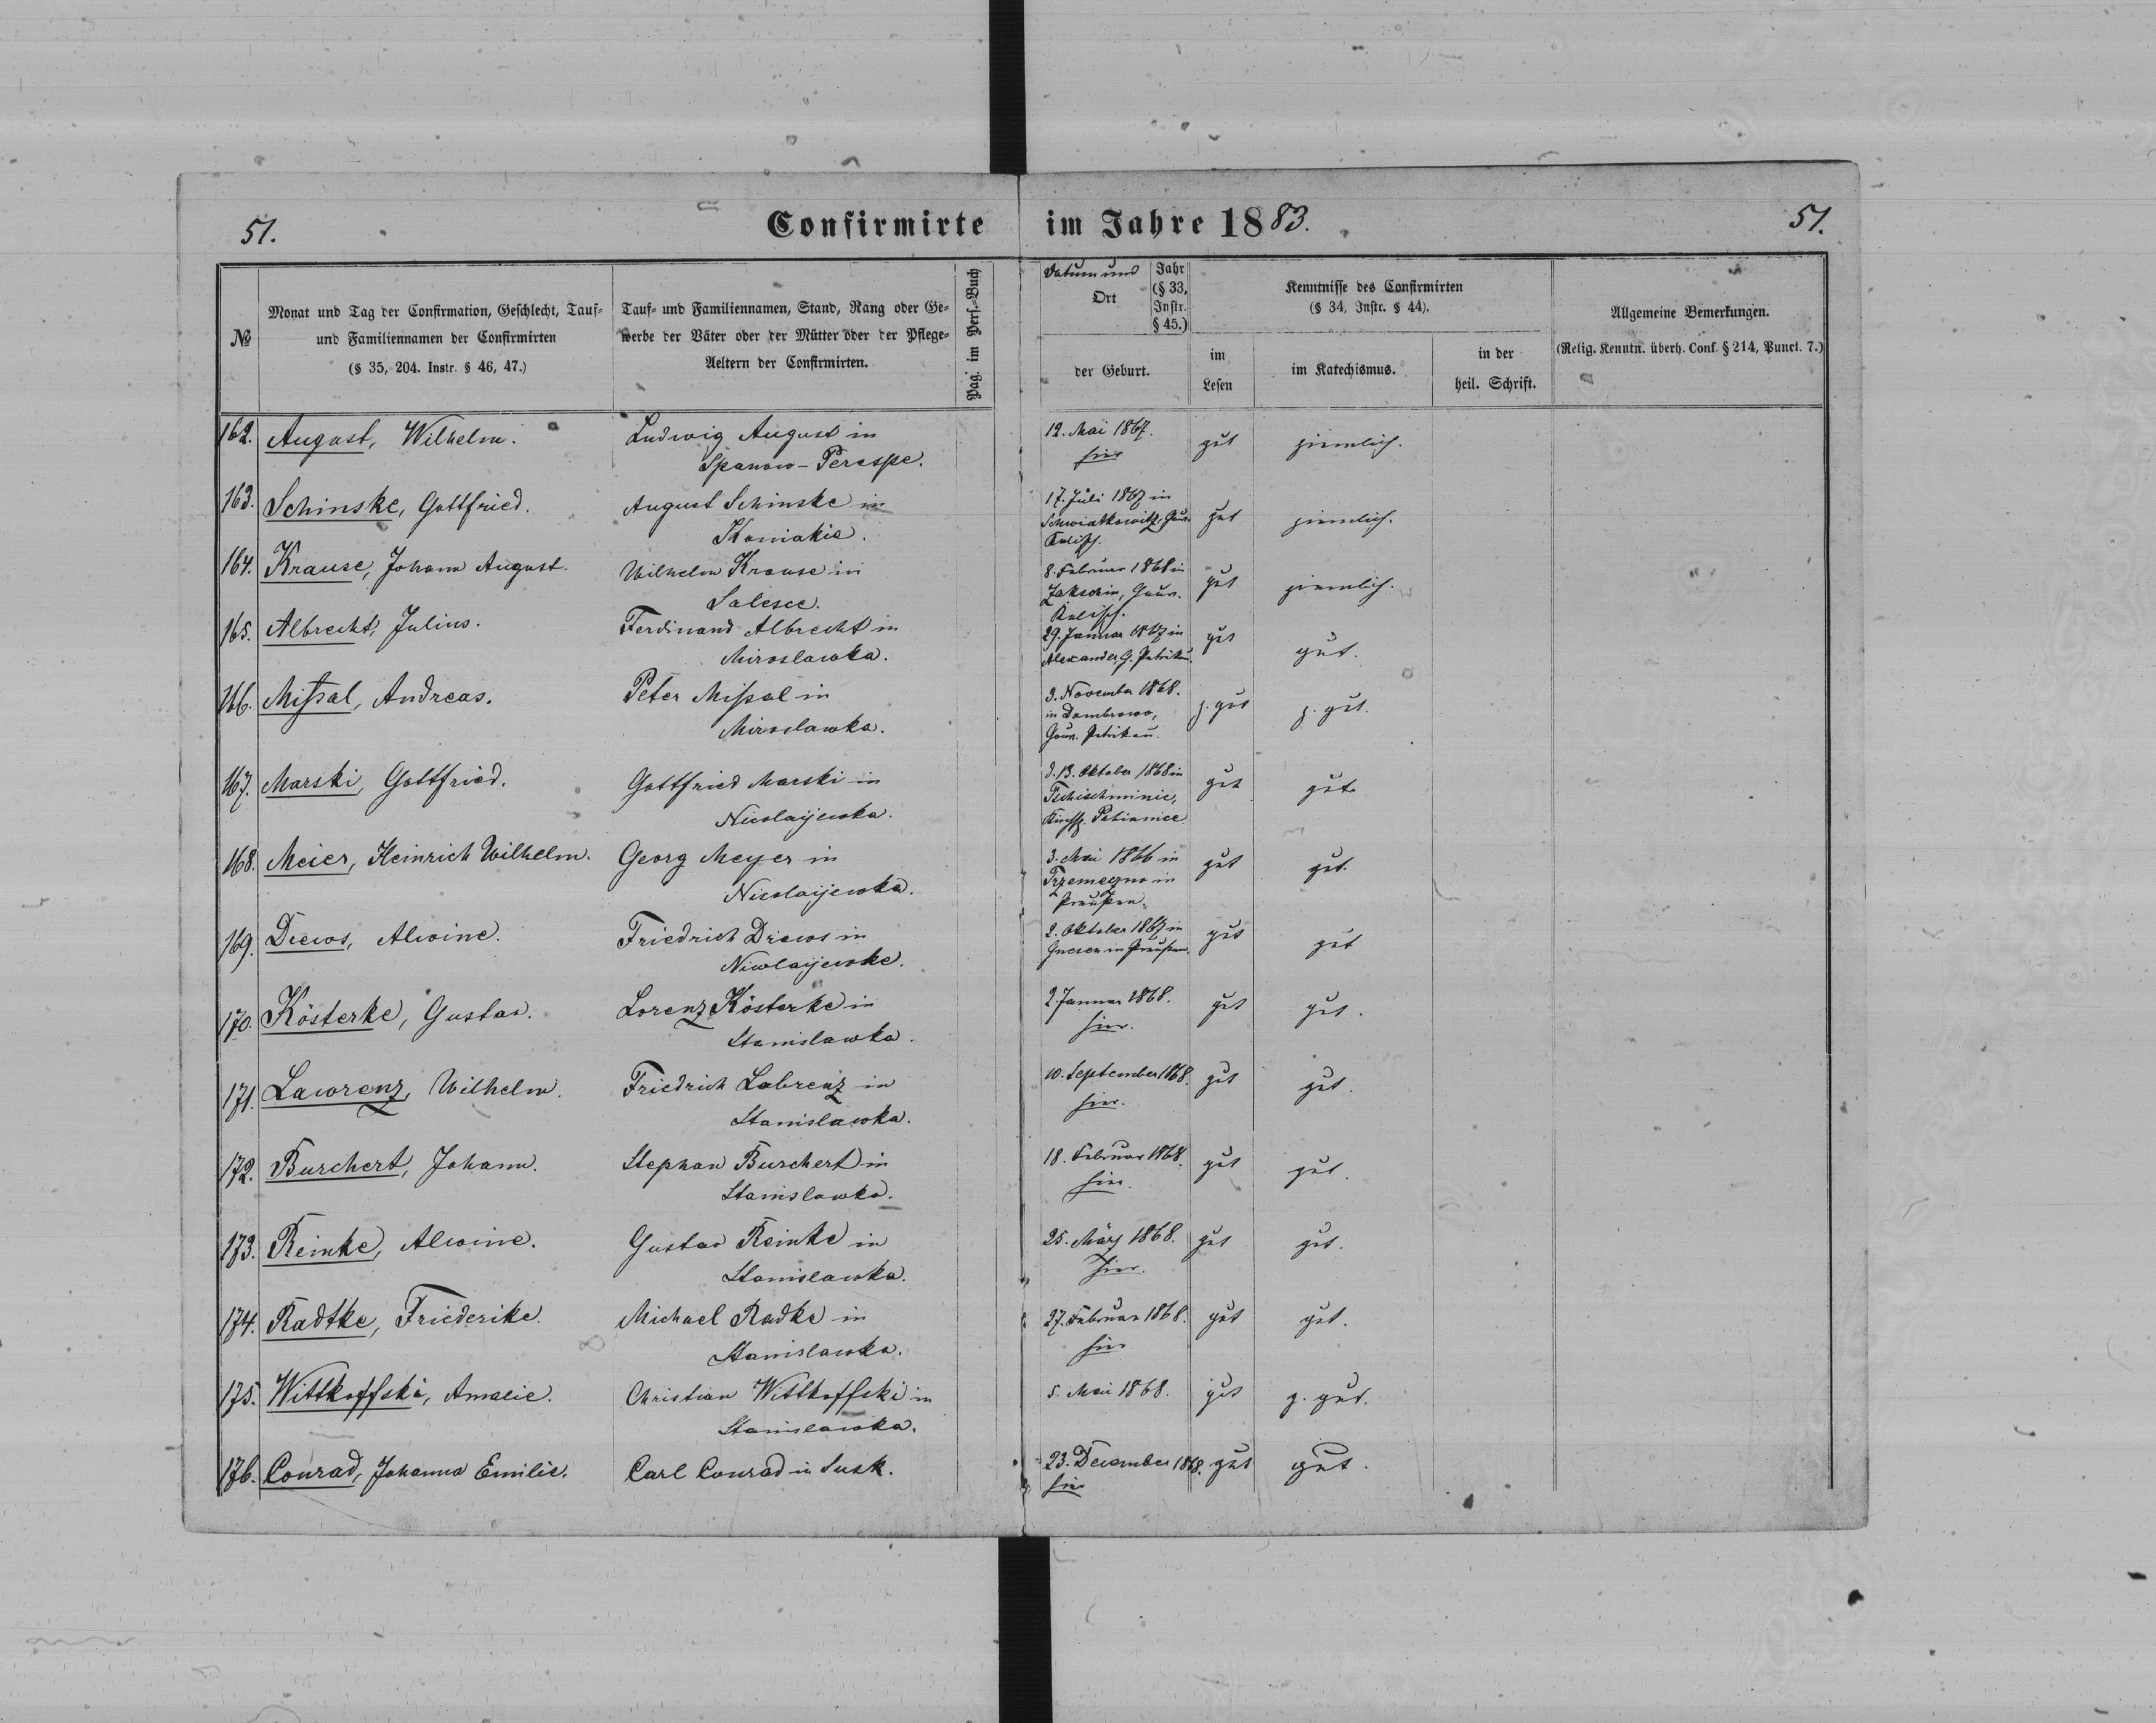 51.
Confirmirte im Jahre 1883.
51.
№
Monat und Tag der Confirmation, Geschlecht, Tauf-
und Familiennamen der Confirmirten
(§ 35, 204. Instr. § 46, 47.)
Tauf- und Familiennamen, Stand, Rang oder Ge-
werbe der Väter oder der Mütter oder der Pflege-
Aeltern der Confirmirten.
Pag. im Pers.-Buch
Datum und
Ort
Jahr
(§ 33,
Instr.
§ 45.)
der Geburt.
Kenntnisse des Confirmirten
(§ 34, Instr. § 44).
im
Lesen
im Katechismus.
in der
heil. Schrift.
Allgemeine Bemerkungen.
(Relig. Kenntn. überh. Conf. § 214, Punct. 7.)
162. August, Wilhelm. Ludwig August in 12. Mai 1867. gut ziemlich.
Spanow-Perespe. hier
163. Schinske, Gottfried. August Schinske in 17. Juli 1867 in gut ziemlich.
Koniakie. Schwiatkowitz, Gouv.
Kalisch.
164. Krause, Johann August. Wilhelm Krause in 8. Februar 1868 in gut ziemlich.
Salesce. Zakschin, Gouv.
Kalisch.
165. Albrecht, Julius. Ferdinand Albrecht in 29. Januar 1867 in gut gut.
Miroslawka. Alexander, G. Petrikau.
166. Missal, Andreas. Peter Missal in 3. November 1868. z. gut z. gut.
Miroslawka. in Dombrowo,
Gouv. Petrikau.
167. Marski, Gottfried. Gottfried Marski in d. 13. Oktober 1868 in gut gut.
Nicolaijewka. Tschischminie,
Kirchsp. Pabianice
168. Meier, Heinrich Wilhelm. Georg Meyer in 3. Mai 1866 in gut gut.
Nicolaijewka. Trzemeszno in
Preußen.
169. Drews, Alwine. Friedrich Drews in 2. Oktober 1867 in gut gut
Nicolaijewke. Gnesen in Preußen.
170. Kösterke, Gustav. Lorenz Kösterke in 2. Januar 1868. gut gut.
Stanislawka. hier.
171. Lawrenz, Wilhelm. Friedrich Labrenz in 10. September 1868. gut gut.
Stanislawka. hier.
172. Burchert, Johann. Stephan Burchert in 18. Februar 1868. gut gut.
Stanislawka. hier.
173. Reinke, Alwine. Gustav Reinke in 25. März 1868. gut gut.
Stanislawka. hier.
174. Radtke, Friederike. Michael Radke in 27. Februar 1868. gut gut.
Stanislawka. hier
175. Wittkoffski, Amalie. Christian Wittkoffski in 5. Mai 1868. gut z. gut.
Stanislawka.
176. Conrad, Johanna Emilie. Carl Conrad in Susk. 23. December 1868. gut gut.
hier